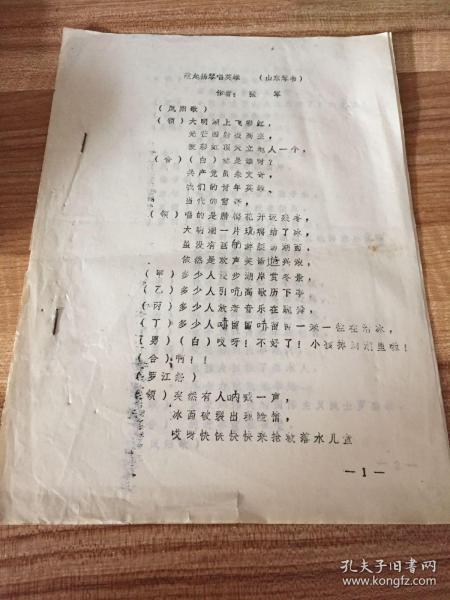 扬琴唱英雄 （山东琴书）
作者：张军
（凤阳歌）
（领）大明湖上飞彩虹，
光芒四射
彩虹顶天立地人一个，
（合）（白）是谁呀？
共产党员
我们的青年英雄，
当代的雷锋，
（领）唱的是腊梅花开
大明湖一片琉璃结了冰，
虽没有画舫游艇的湖面，
依然是欢声笑语 兴浓，
（甲）多少人漫步湖岸赏冬景，
（乙）多少人引吭高歌历下亭
（丙）多少人放着音乐在
（丁）多少人嘻留留嘻留留一來一往在溜冰，
（男）（白）哎呀！不好了！小孩掉到湖里啦！
（合）啊？！
（罗江怨）
（领）突然有人呐喊一声，
冰面破裂出现险情，
哎呀快快快快来抢救落水儿童
—1—
孔夫子旧书网
www.kongfz.com